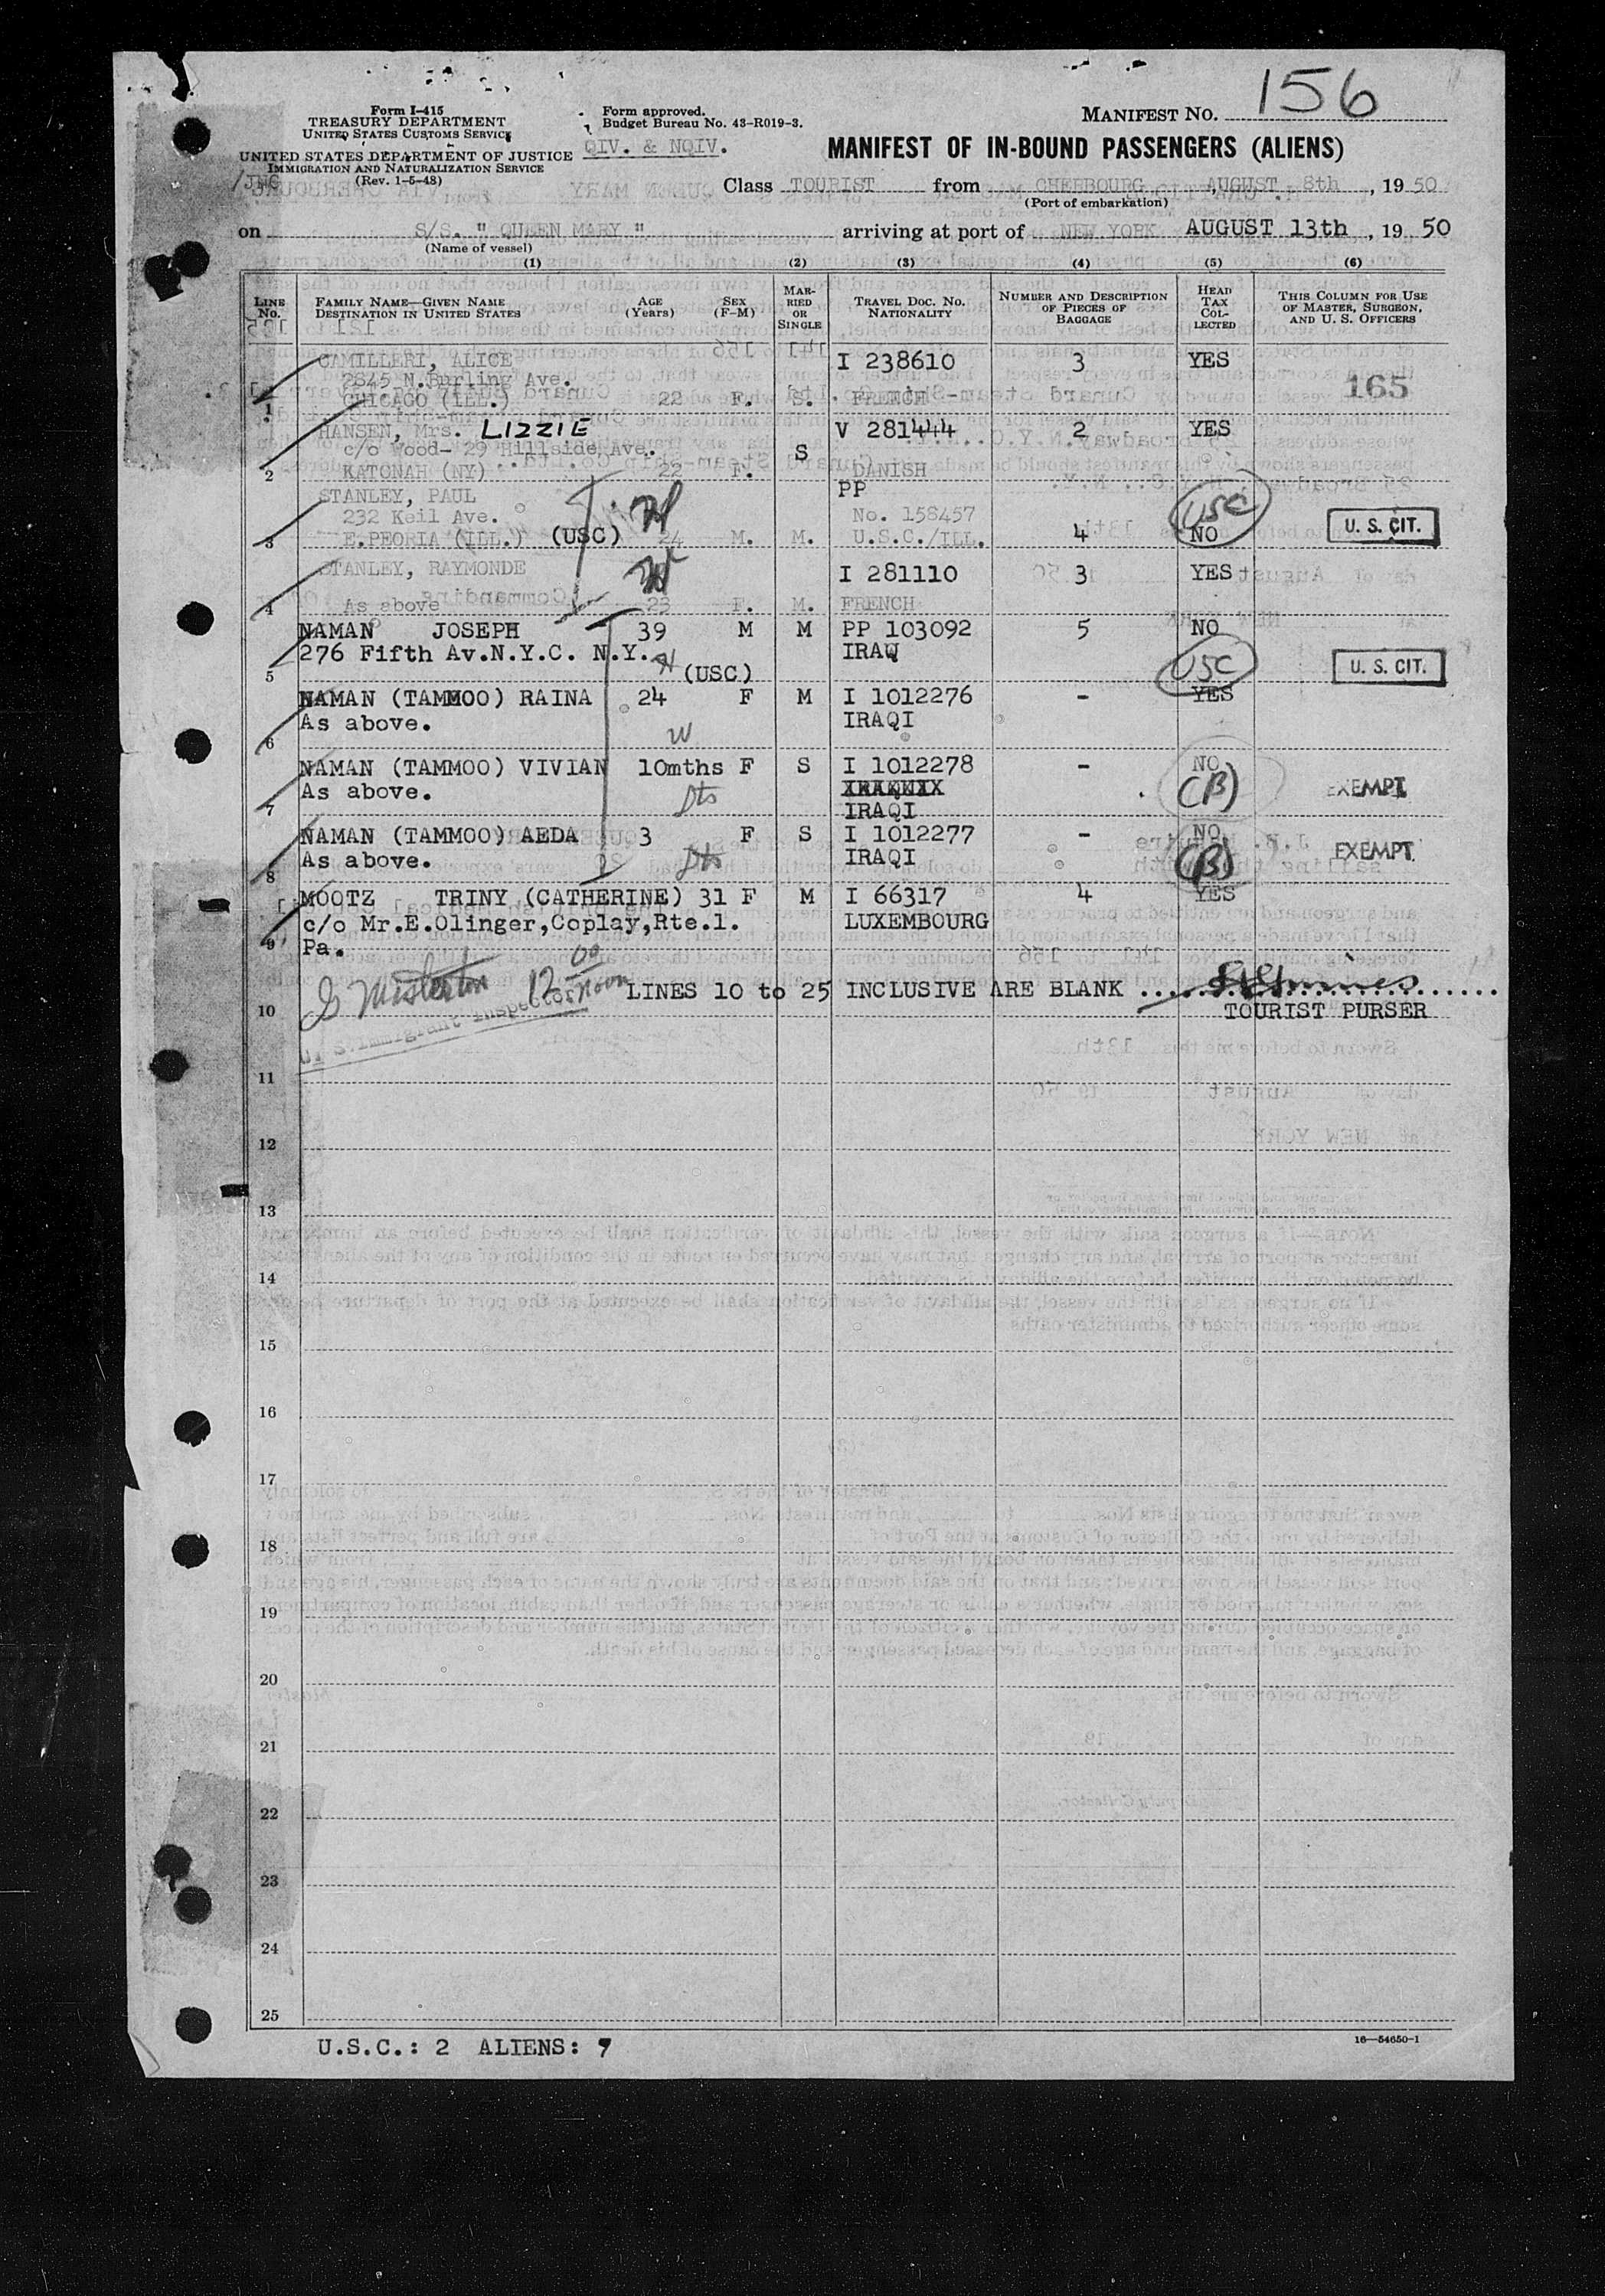 Form I-415
TREASURY DEPARTMENT
UNITED STATES CUSTOMS SERVICE
UNITED STATES DEPARTMENT OF JUSTICE
IMMIGRATION AND NATURALIZATION SERVICE
(Rev. 1-5-48)
Form approved.
Budget Bureau No. 43-R019-3.
QIV. & NQIV.
MANIFEST NO. 156
MANIFEST OF IN-BOUND PASSENGERS (ALIENS)
Class TOURIST from CHERBOURG, AUGUST 8th, 1950
(Port of embarkation)
on S/S. " QUEEN MARY " arriving at port of NEW YORK AUGUST 13th, 1950
(Name of vessel)
(1) (2) (3) (4) (5) (6)
LINE NO.
FAMILY NAME—GIVEN NAME
DESTINATION IN UNITED STATES
AGE (YEARS)
SEX (F-M)
MARRIED OR SINGLE
TRAVEL DOC. NO. NATIONALITY
NUMBER AND DESCRIPTION OF PIECES OF BAGGAGE
HEAD TAX COLLECTED
THIS COLUMN FOR USE OF MASTER, SURGEON, AND U. S. OFFICERS
CAMILLERI, ALICE I 238610 3 YES
2845 N.Burling Ave. 165
1 CHICAGO (ILL.) 22 F. S. FRENCH
HANSEN, Mrs. LIZZIE V 281444 2 YES
c/o Wood- 29 Hillside Ave. S
2 KATONAH (NY) 22 F. DANISH
STANLEY, PAUL PP
232 Keil Ave. No. 158457 USC
3 E.PEORIA (ILL.) (USC) 24 M. M. U.S.C./ILL. 4 NO U. S. CIT.
STANLEY, RAYMONDE I 281110 3 YES
4 As above 23 F. M. FRENCH
NAMAN JOSEPH 39 M M PP 103092 5 NO
276 Fifth Av.N.Y.C. N.Y. IRAQ
5 (USC) USC U. S. CIT.
NAMAN (TAMMOO) RAINA 24 F M I 1012276 - YES
As above. IRAQI
6
NAMAN (TAMMOO) VIVIAN 10mths F S I 1012278 - NO
As above. (B) EXEMPT
7 IRAQI
NAMAN (TAMMOO) AEDA 3 F S I 1012277 - NO
As above. IRAQI (B) EXEMPT
8
MOOTZ TRINY (CATHERINE) 31 F M I 66317 4 YES
c/o Mr.E.Olinger,Coplay,Rte.1. LUXEMBOURG
9 Pa.
12 00 Noon LINES 10 to 25 INCLUSIVE ARE BLANK
10 TOURIST PURSER
U. S. Immigrant Inspector
11
12
13
14
15
16
17
18
19
20
21
22
23
24
25
U.S.C.: 2 ALIENS: 7
16—54650-1